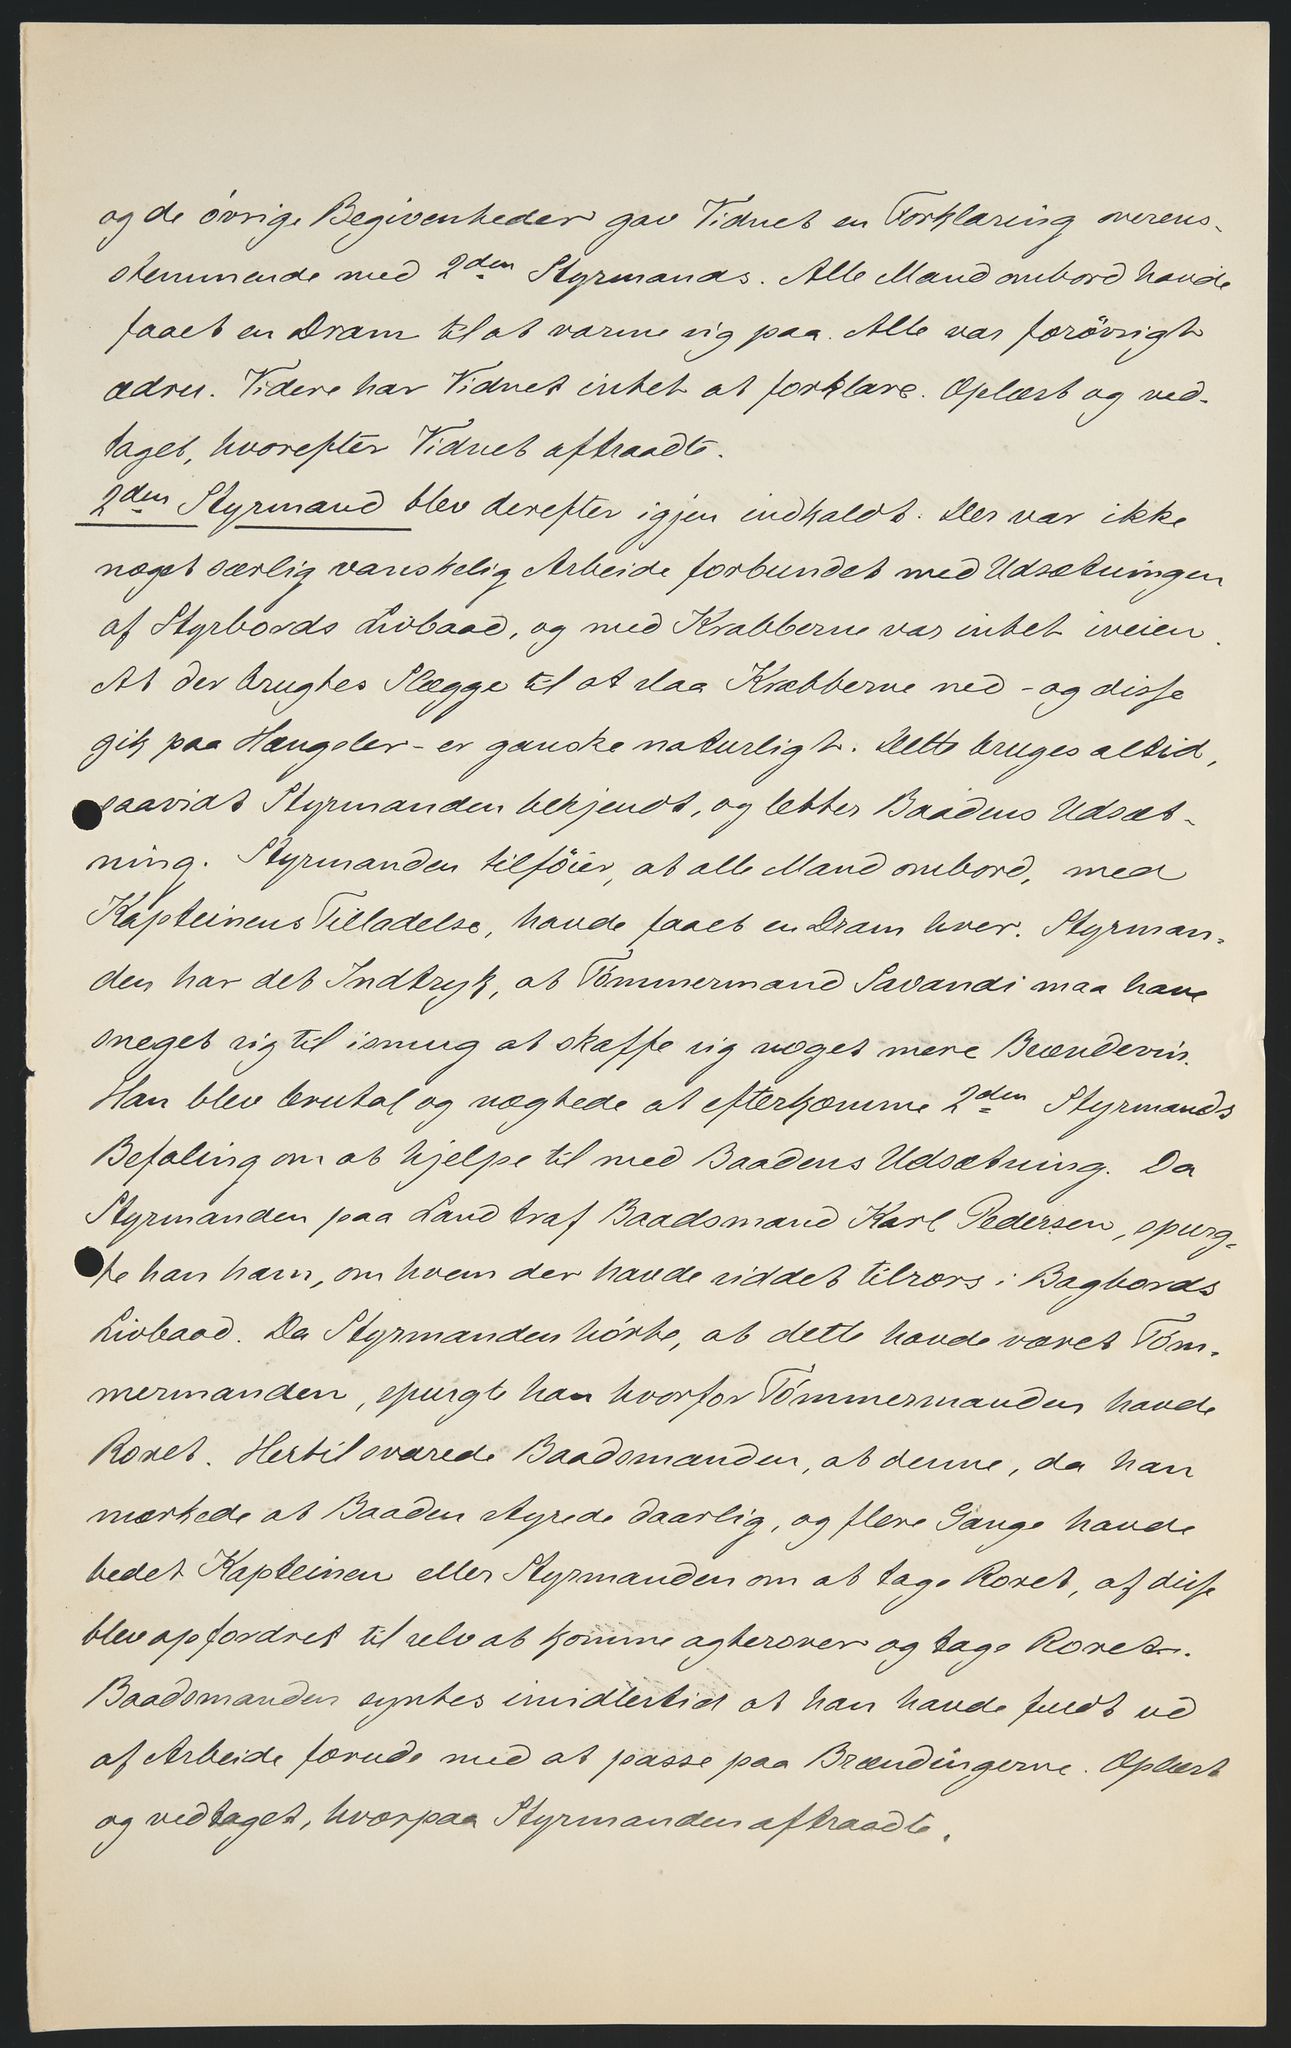 og de övrige Begivenheder gav Vidnet en Forklaring overens-
stemmende med 2den Styrmands. Alle Mand ombord havde
faaet en Dram til at varme sig paa. Alle var forövrigt
ædru. Videre har Vidnet intet at forklare. Oplæst og ved-
taget, hvorefter Vidnet aftraadte.
2den Styrmand blev derefter igjen indkaldt. Der var ikke
noget særlig vanskelig Arbeide forbundet med Udsætningen
af Styrbords Livbaad, og med Krabberne var intet iveien.
At der brugtes Slægge til at slaa Krabberne ned - og disse
gik paa Hængsler - er ganske naturligt. Dette bruges altid,
saavidt Styrmanden bekjendt, og letter Baadens Udsæt-
ning. Styrmanden tilföier, at alle Mand ombord, med
Kapteinens Tilladelse, havde faaet en Dram hver. Styrman-
den har det Indtryk, at Tömmermand Savandi maa have
sneget sig til ismug at skaffe sig noget mere Brændevin.
Han blev brutal og nægtede at efterkomme 2den Styrmands
Befaling om at hjelpe til med Baadens Udsætning. Da
Styrmanden paa Land traf Baadsmand Karl Pedersen, spurg-
te han ham, om hvem der havde siddet tilrors i Bagbords
Livbaad. Da Styrmanden hörte, at dette havde været Töm-
mermanden, spurgte han hvorfor Tömmermanden havde
Roret. Hertil svarede Baadsmanden, at denne, da han
mærkede at Baaden styrede daarlig, og flere Gange havde
bedet Kapteinen eller Styrmanden om at tage Roret, af disse
blev opfordret til selv at komme agterover og tage Roret.
Baadsmanden syntes imidlertid at han havde fuldt op
af Arbeide forude med at passe paa Brændingerne. Oplæst
og vedtaget, hvorpaa Styrmanden aftraadte.